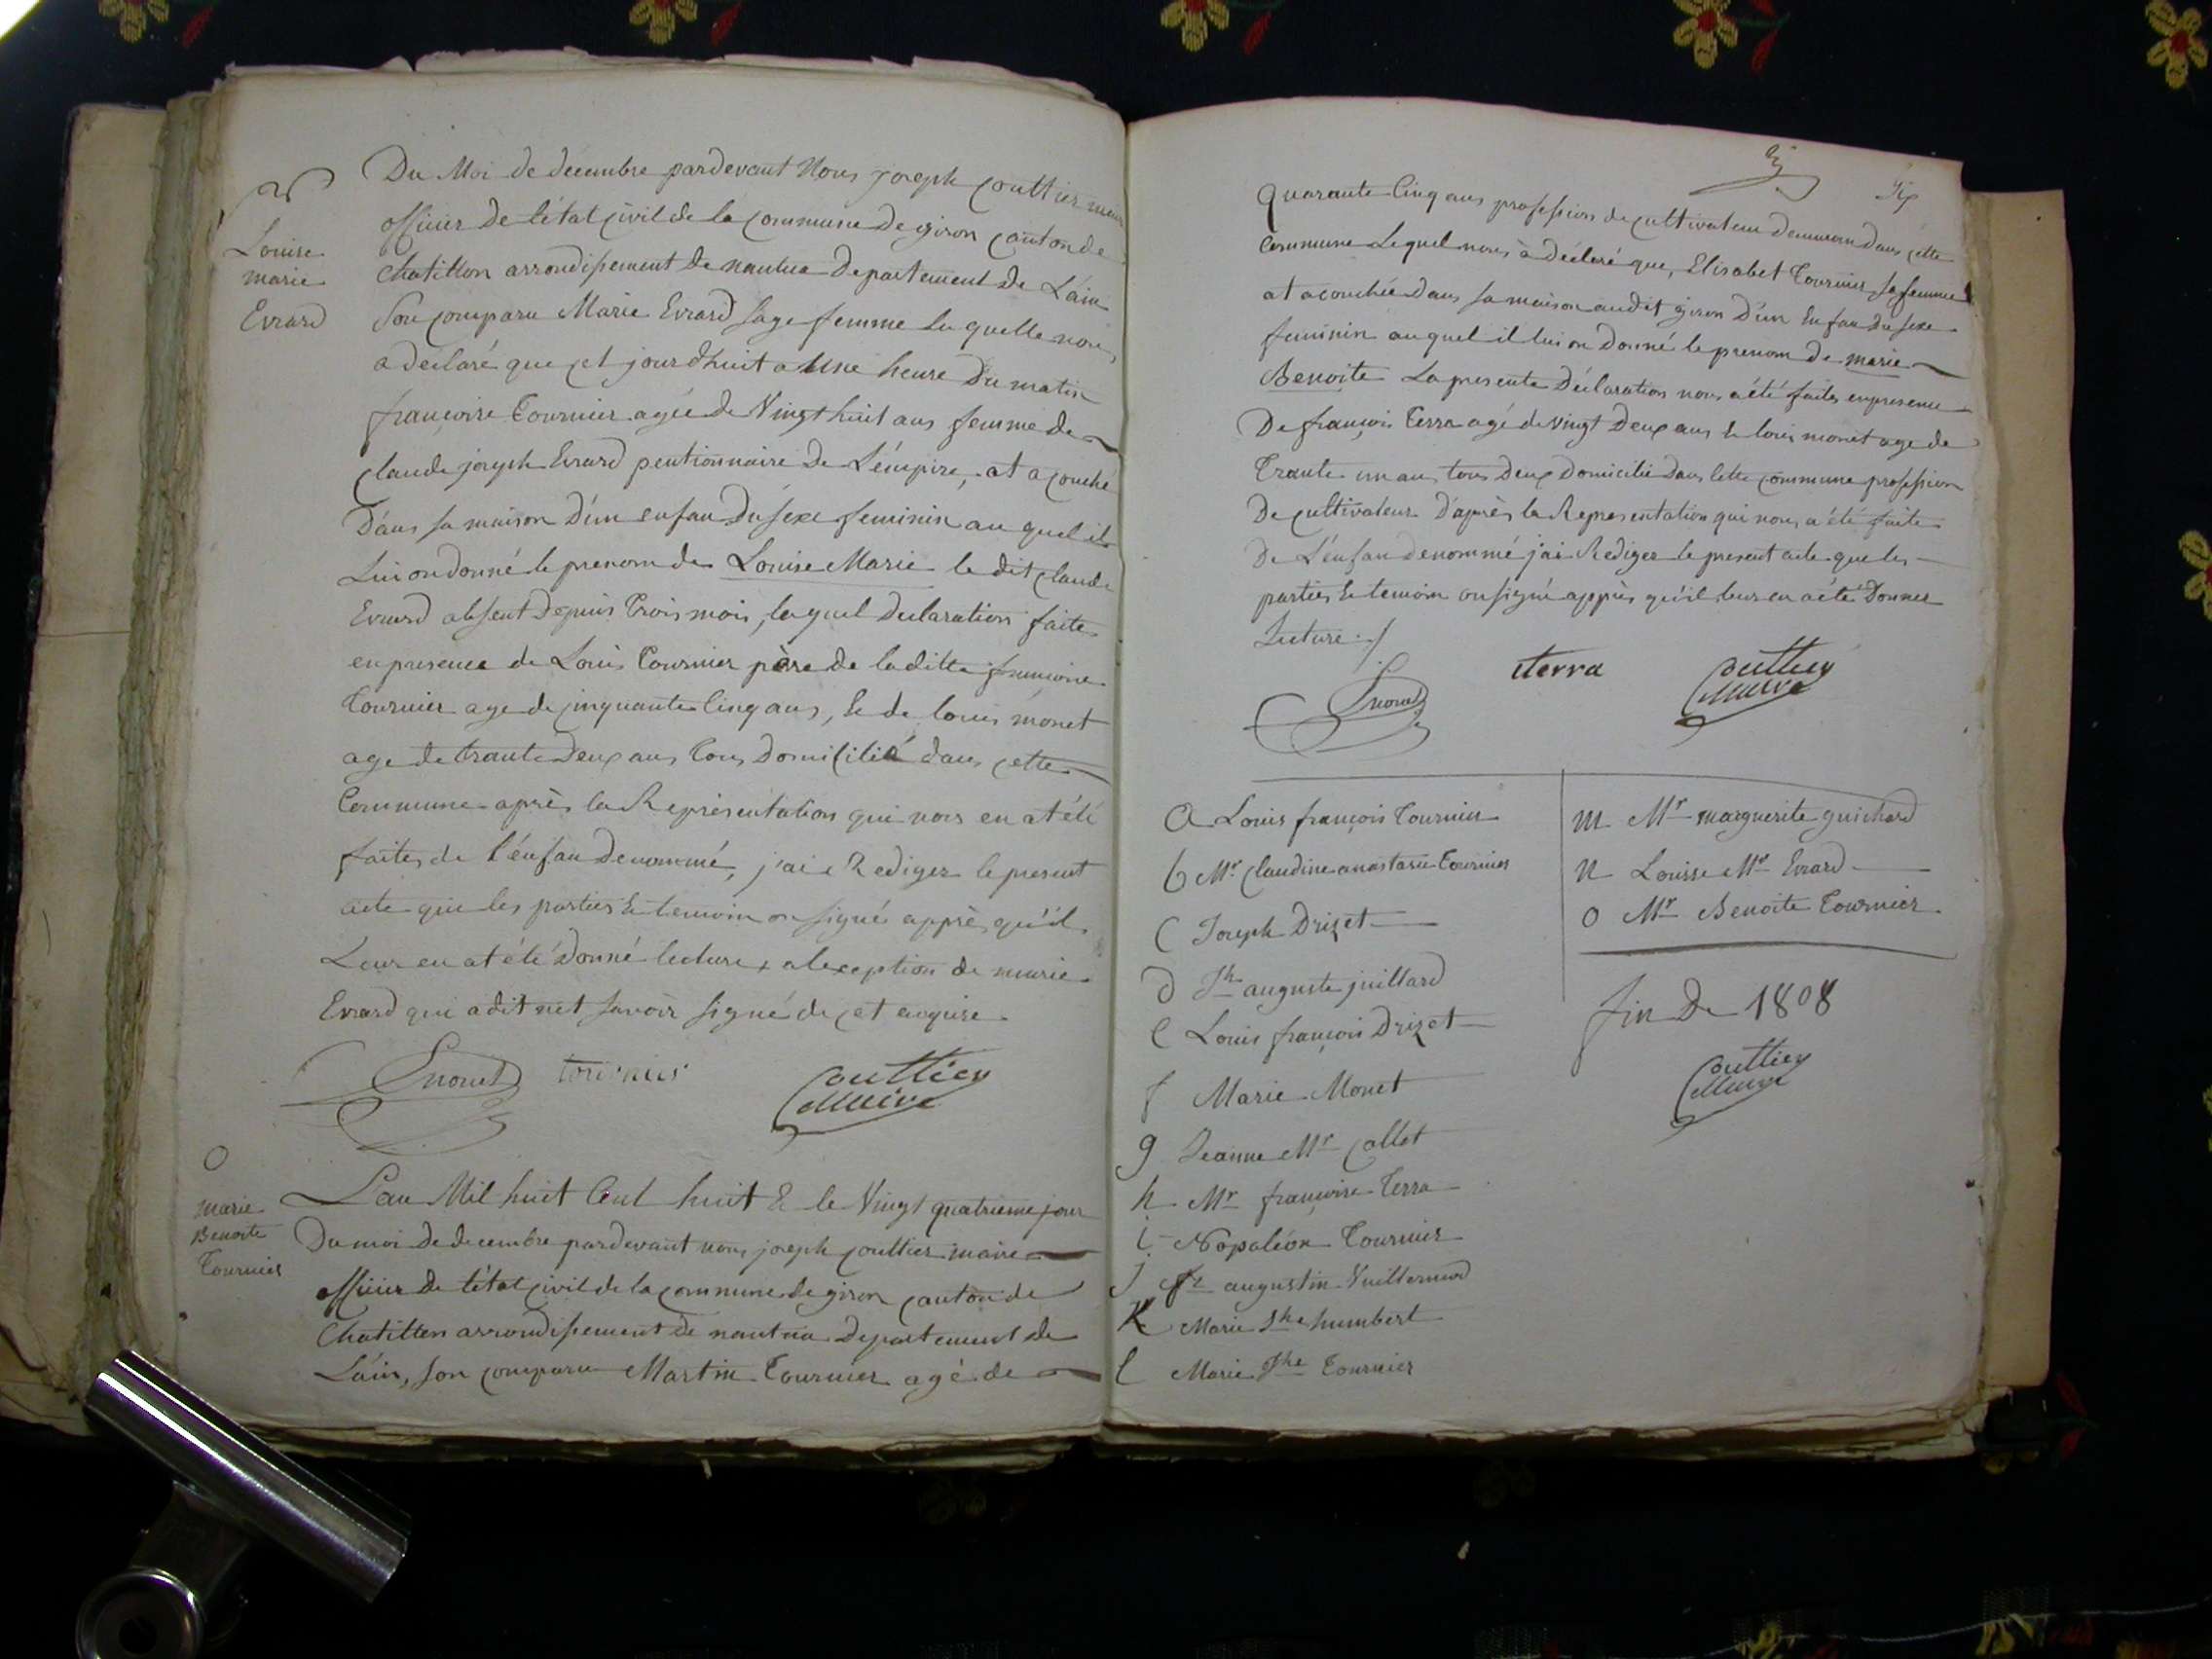 Du Moi de decembre pardevant Nous joseph Couttier maire
officier de l'état civil de la Commune de giron canton de
Chatillon arrondissement de nantua departement de L'ain
Son comparu Marie Evrard sage femme la quelle nous
a declaré que cet jourd'huit a une heure Du matin
françoise Tournier agée de Vingt huit ans femme de
Claude joseph Evrard pentionnaire De L'émpire, at acouché
Dans sa maison D'un enfan Du sexe feminin au quel il
Lui on donné le prenom de Louise Marie le dit Claude
Evrard absent Depuis Trois mois, laquel declaration faite
en presence de Louis Tournier père de la ditte françoise
Tournier age de cinquante Cinq ans, & de louis monet
age de trante Deux ans Tous Domicilié dans cette
Commune après la Représentation qui nous en at été
faites de l'énfan denommé, j'ai Rediger le present
acte que les parties & temoin on signé apprès qu'il
Leur en at été Donné lecture, a lexception de marie
Evrard qui a dit net savoir signé de cet enquise
Louise
marie
Evrard
Lmonet tournier Couttier
Maire
O
marie
Benoite
Tournier
L'an Mil huit Cent huit & le Vingt quatrieme jour
Du moi de decembre pardevant nous joseph Couttier maire
officier de l'état civil de la commune de giron canton de
Chatillon arrondissement de nantua departement de
L'ain, son comparu Martin Tournier agé de
Six
quarante Cinq ans profession de cultivateur demeuran dans cette
Commune Lequel nous à déclaré que, Elisabet Tournier sa femme
at acouchée dans sa maison audit giron D'un Enfan du sexe
feminin auquel il lui on Donné le prenom de marie
Benoite La presente Déclaration nous a été faites en presence
De françois Terra agé de Vingt Deux ans & louis monet age de
Trante un ans tous deux domicilié dans cette commune profession
De cultivateur D'après la Representation qui nous a été faite
De L'énfan denommé j'ai Rediger le present acte que les
parties & temoin on signé apprès qu'il leur en a été Donner
Lecture ./
Lmonet terra Couttier
Maire
a Louis françois Tournier
b Mr Claudine anastasie Tournier
C Joseph Drizet
d Jh auguste juillard
e Louis françois Drizet
f Marie Monet
g Jeanne Mr Collet
h Mr françoise Terra
i Nopaléon Tournier
j augustin Vuillermod
K Marie Jhe humbert
l Marie Jhe Tournier
m Mr marguerite guichard
n Louisse Mr Evrard
o Mr Benoite Tournier
fin De 1808
Couttier
Maire